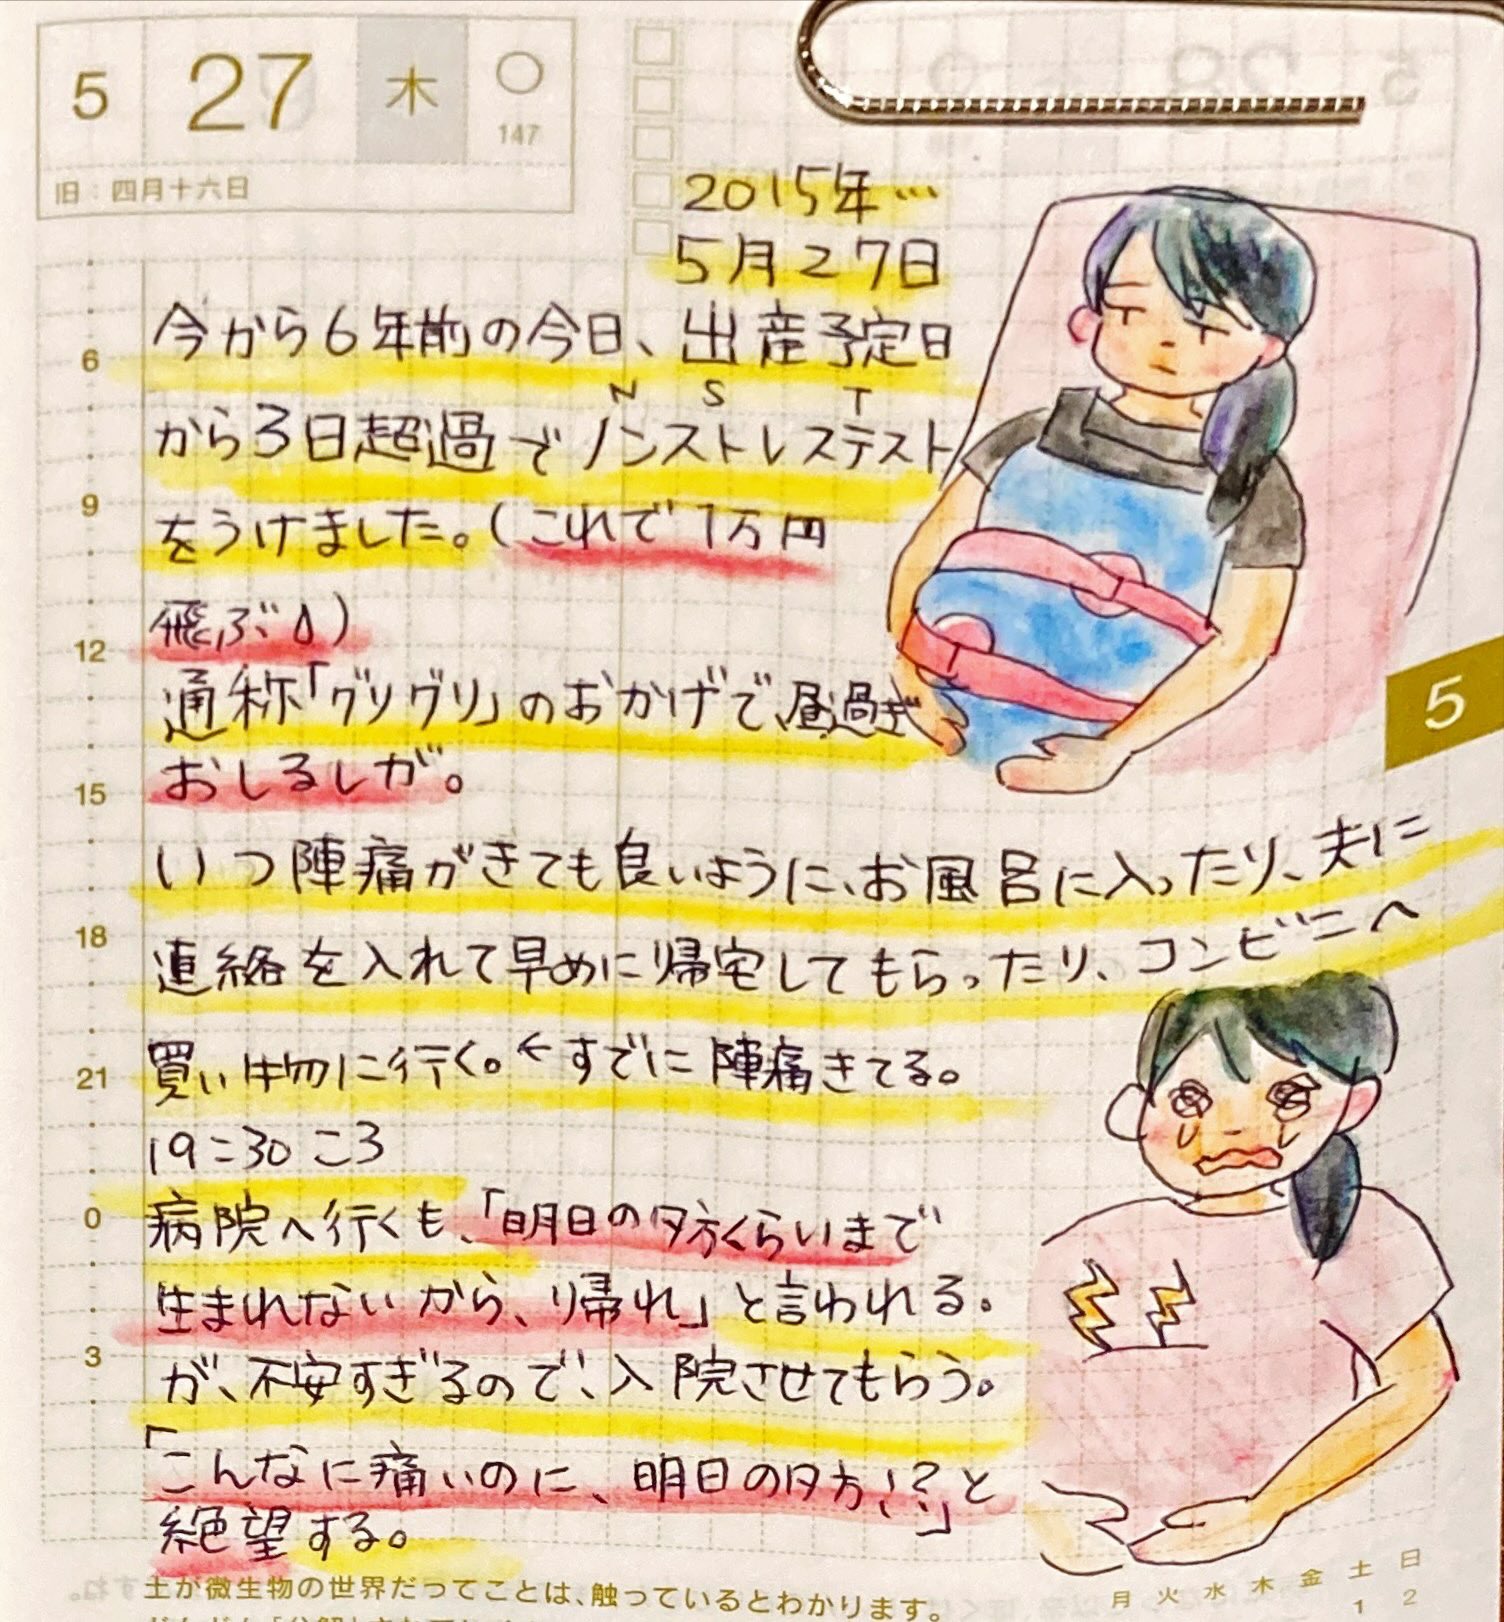 5 27 木 ○
147
旧：四月十六日
2015年…
5月27日
今から6年前の今日、出産予定日
N S T
から3日超過でノンストレステスト
をうけました。(これで1万円
飛ぶ)
通称「グリグリ」のおかげで、昼過ぎ
おしるしが。
いつ陣痛がきても良いように、お風呂に入ったり、夫に
連絡を入れて早めに帰宅してもらったり、コンビニへ
買い物に行く。←すでに陣痛きてる。
19:30ころ
病院へ行くも、「明日の夕方くらいまで
生まれないから、帰れ」と言われる。
が、不安すぎるので、入院させてもらう。
「こんなに痛いのに、明日の夕方!?」と
絶望する。
6
9
12
15
18
21
0
3
5
土が微生物の世界だってことは、触っているとわかります。
月 火 水 木 金 土 日
1 2